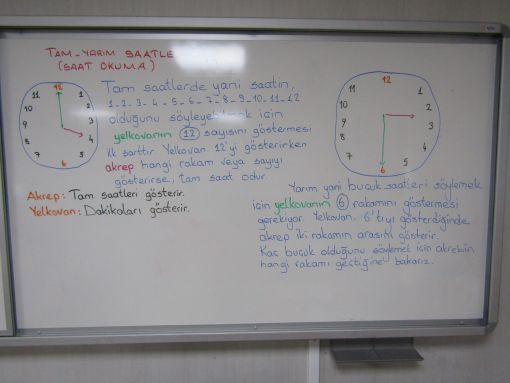 TAM-YARIM SAATLE
(SAAT OKUMA)
12
1
2
3
4
5
6
7
8
9
10
11
Tam saatlerde yani saatin,
1-2-3-4-5-6-7-8-9-10-11-12
olduğunu söyleyebilmek için
yelkovanın 12 sayısını göstermesi
ilk şarttır. Yelkovan 12'yi gösterirken
akrep hangi rakam veya sayıyı
gösterirse, tam saat odur.
Akrep: Tam saatleri gösterir.
Yelkovan: Dakikaları gösterir.
12
1
2
3
4
5
6
7
8
9
10
11
Yarım yani buçuk saatleri söylemek
için yelkovanın 6 rakamını göstermesi
gerekiyor. Yelkovan 6'tıyı gösterdiğinde
akrep iki rakamın arasını gösterir.
Kaç buçuk olduğunu söylemek için akrebin
hangi rakamı geçtiğine bakarız.